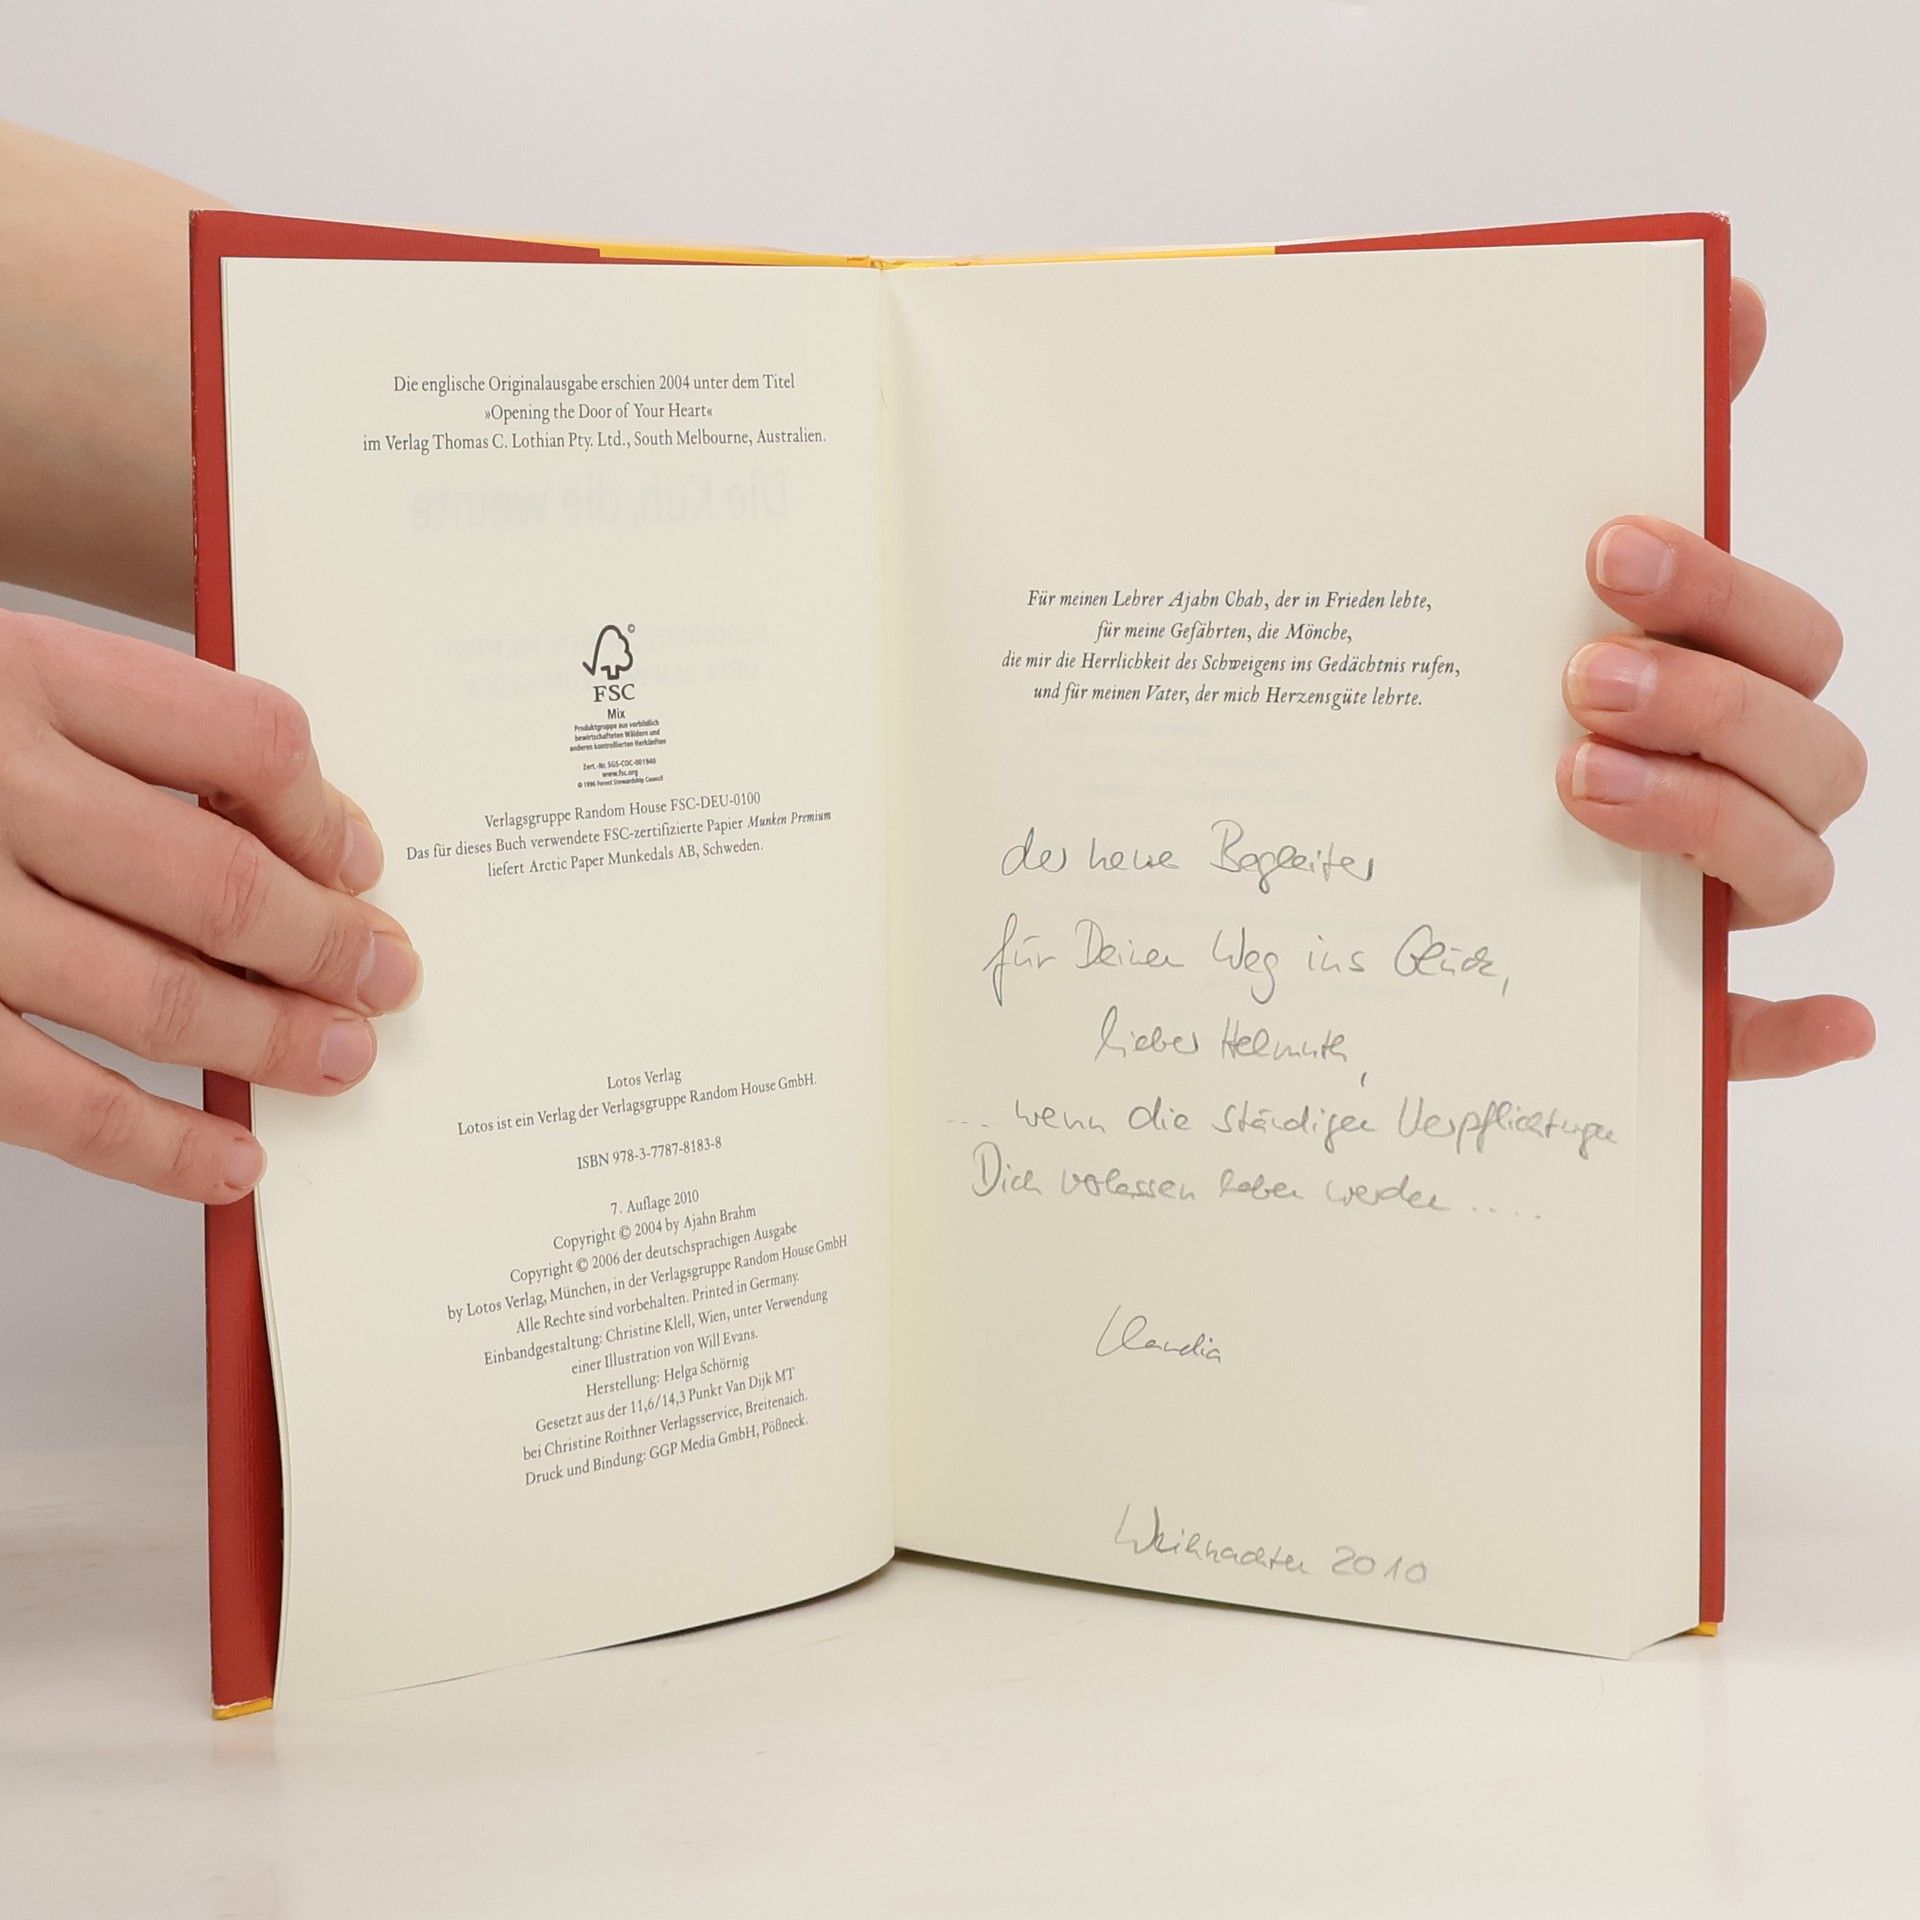 Die englische Originalausgabe erschien 2004 unter dem Titel
»Opening the Door of Your Heart«
im Verlag Thomas C. Lothian Pty. Ltd., South Melbourne, Australien.
Die Kuh, die weinte
©
FSC
Mix
Produktgruppe aus vorbildlich
bewirtschafteten Wäldern und
anderen kontrollierten Herkünften
Zert.-Nr. SGS-COC-001940
www.fsc.org
© 1996 Forest Stewardship Council
Verlagsgruppe Random House FSC-DEU-0100
Das für dieses Buch verwendete FSC-zertifizierte Papier Munken Premium
liefert Arctic Paper Munkedals AB, Schweden.
Lotos Verlag
Lotos ist ein Verlag der Verlagsgruppe Random House GmbH.
ISBN 978-3-7787-8183-8
7. Auflage 2010
Copyright © 2004 by Ajahn Brahm
Copyright © 2006 der deutschsprachigen Ausgabe
by Lotos Verlag, München, in der Verlagsgruppe Random House GmbH
Alle Rechte sind vorbehalten. Printed in Germany.
Einbandgestaltung: Christine Klell, Wien, unter Verwendung
einer Illustration von Will Evans.
Herstellung: Helga Schörnig
Gesetzt aus der 11,6/14,3 Punkt Van Dijk MT
bei Christine Roithner Verlagsservice, Breitenaich.
Druck und Bindung: GGP Media GmbH, Pößneck.
Für meinen Lehrer Ajahn Chah, der in Frieden lebte,
für meine Gefährten, die Mönche,
die mir die Herrlichkeit des Schweigens ins Gedächtnis rufen,
und für meinen Vater, der mich Herzensgüte lehrte.
der neue Begleiter
für Deinen Weg ins Glück,
lieber Helmuth,
... wenn die ständigen Verpflichtungen
Dich verlassen haben werden ....
Claudia
Weihnachten 2010